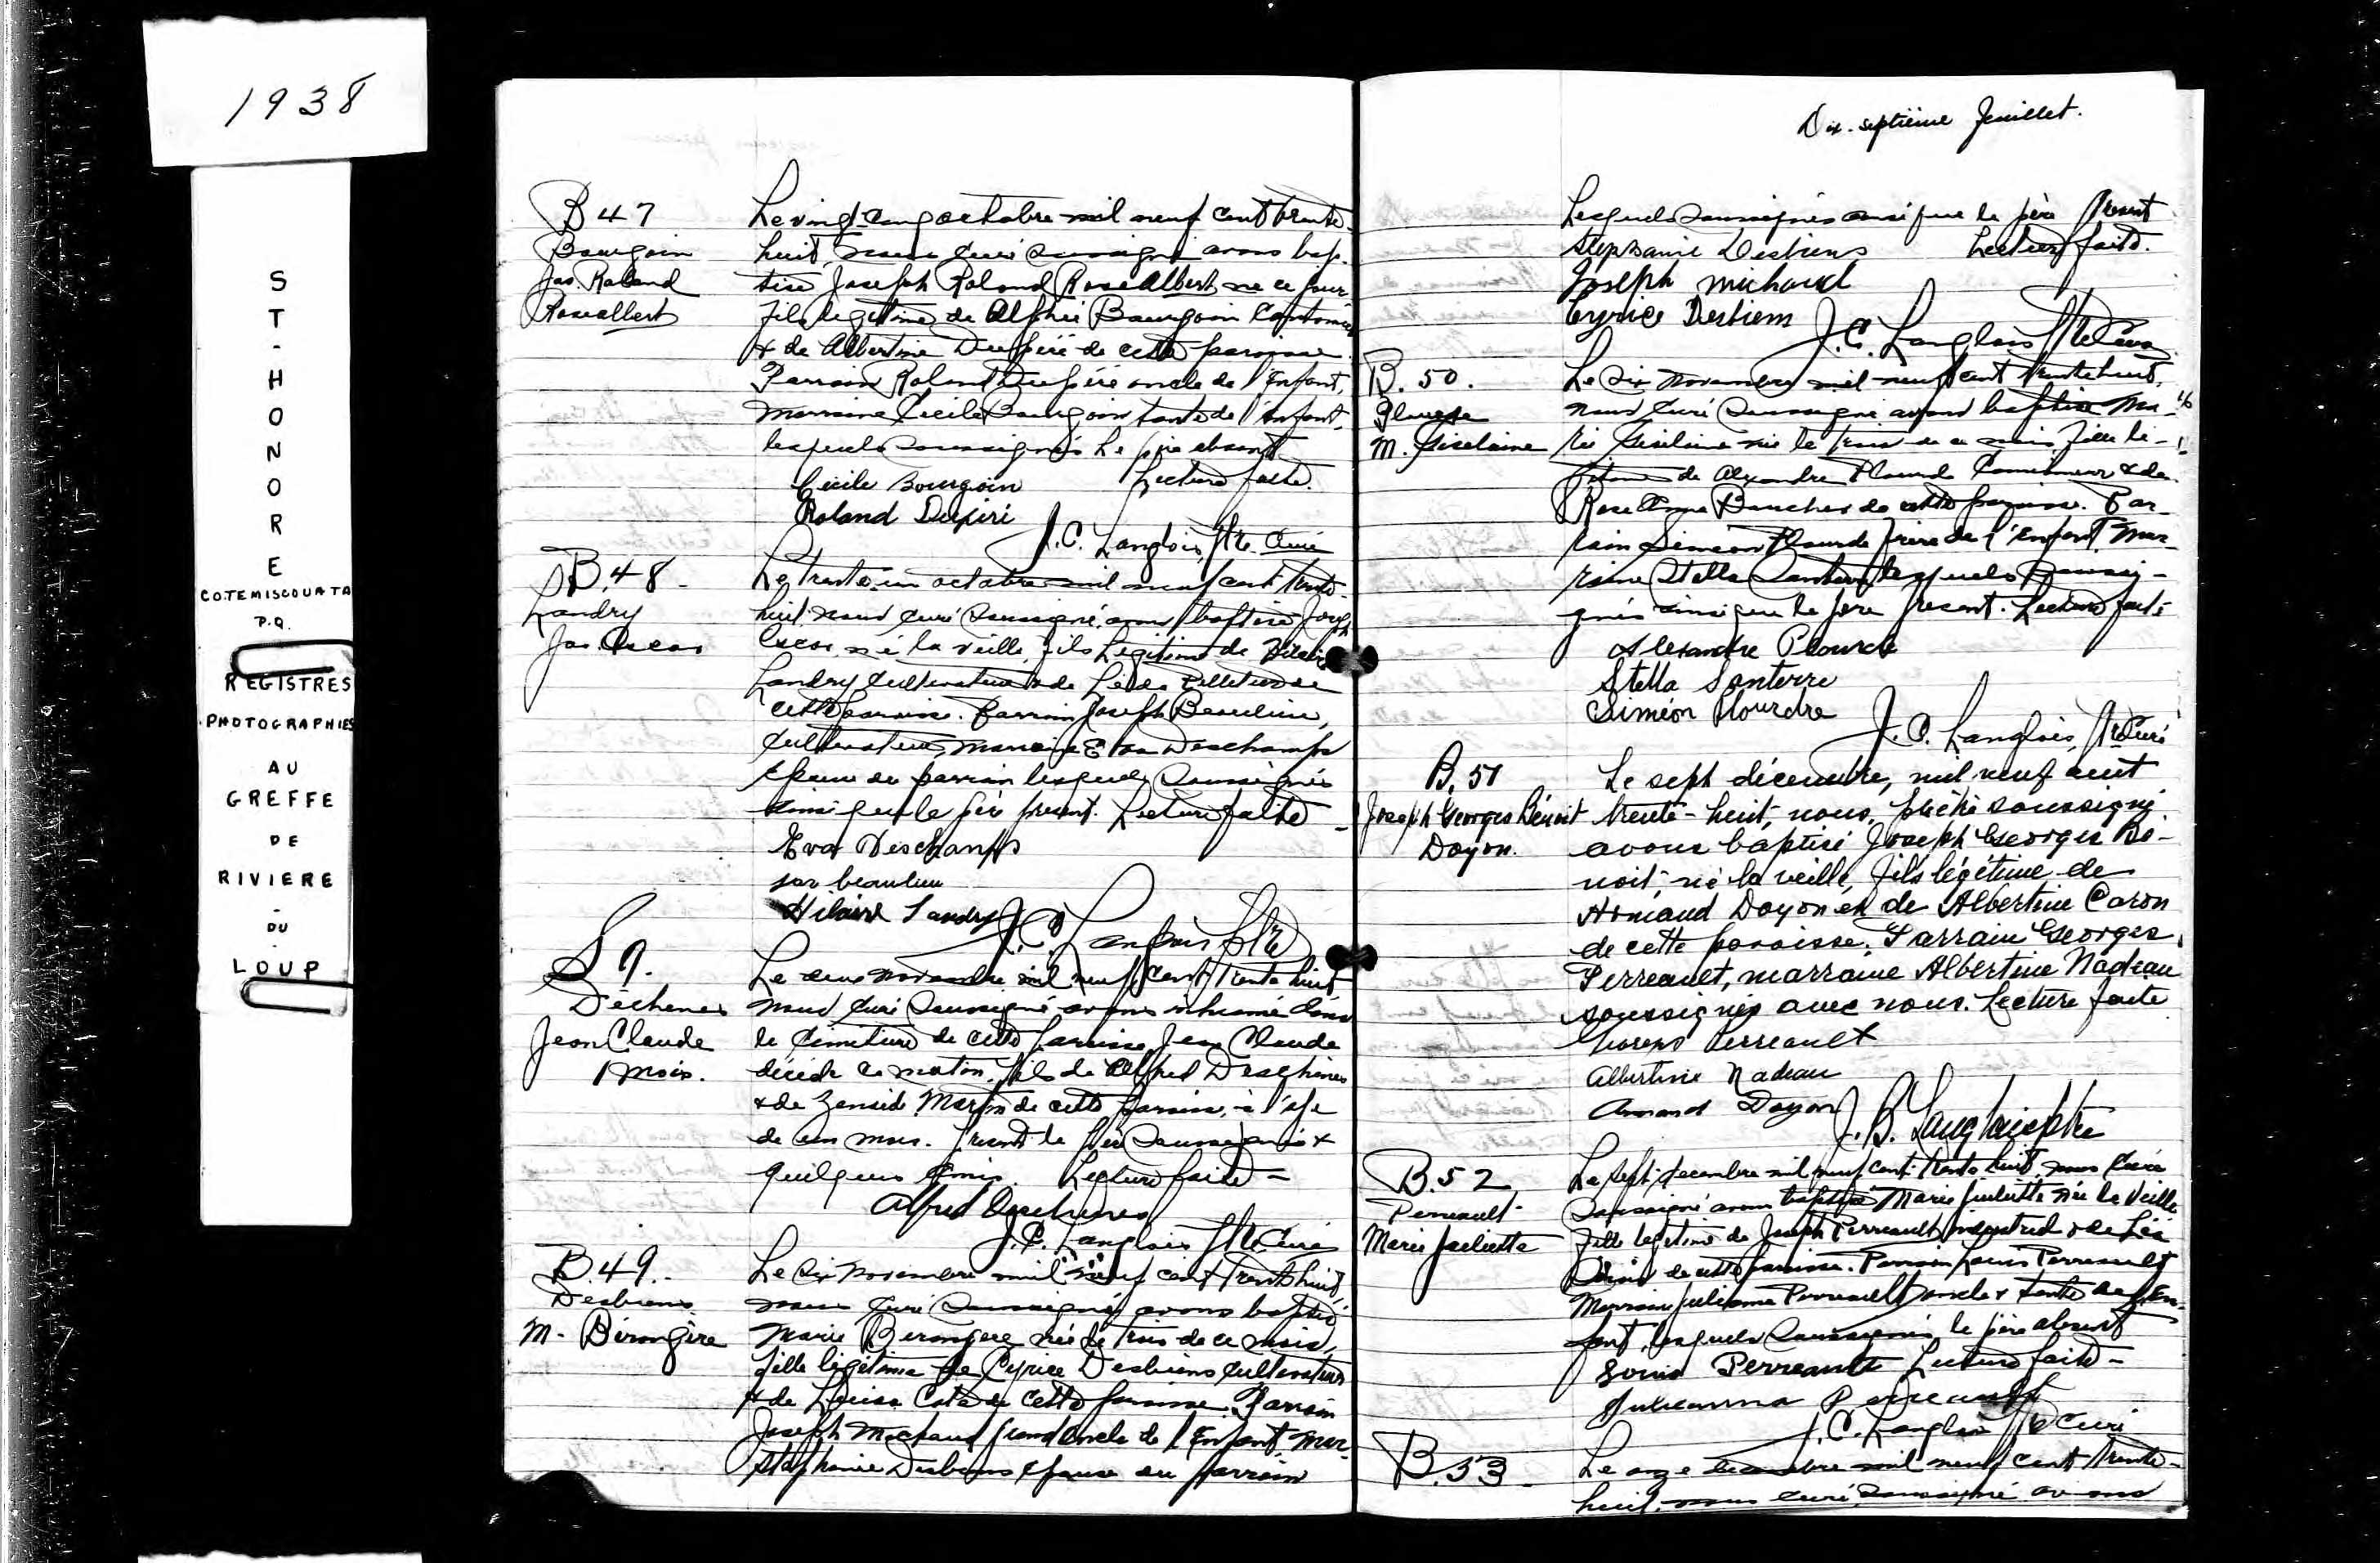 1938
ST-HONORE
COTEMISCOUATA
P.Q.
REGISTRES
PHOTOGRAPHIES
AU
GREFFE
DE
RIVIERE
-
DU
LOUP
B 47
Bourgoin
Jos. Roland
Rosealbert
Le vingt-cinq octobre mil neuf cent trente-
huit nous curé soussigné avons bap-
tisé Joseph Roland Rose Albert né ce jour
fils légitime de Alphée Bourgoin
& de Albertine Dupéré de cette paroisse.
Parrain Roland Dupéré oncle de l'enfant,
marraine Cécile Bourgoin tante de l'enfant
lesquels soussignés. Le père absent.
Cecile Bourgoin Lecture faite.
Roland Dupéré
J.C. Langlois Ptre Curé
B.48-
Landry
Jos. Oscar
Le trente-un octobre mil neuf cent trente-
huit nous curé soussigné avons baptisé Joseph
Oscar, né la veille, fils légitime de Hilaire
Landry cultivateur & de Léda Pelletier de
cette paroisse. Parrain Joseph Beaulieu,
cultivateur, marraine Eva Deschamps
épouse du parrain lesquels soussignés
ainsi que le père présent. Lecture faite
Eva Deschamps
Jos beaulieu
Hilaire Landry
J.C. Langlois Ptre
S 9.
Dechenes
Jean Claude
1 mois.
Le deux novembre mil neuf cent trente huit
nous curé soussigné avons inhumé dans
le cimetière de cette paroisse Jean Claude
décédé ce matin, fils de Alfred Deschênes
& de Zenaide Martin de cette paroisse, à l'âge
de un mois. Présent le père soussigné &
quelques amis. Lecture faite -
Alfred Deschenes
J.C. Langlois Ptre Curé
B.49.-
Desbiens
M. Bérangère
Le six novembre mil neuf cent trente huit,
nous curé soussigné avons baptisé
Marie Berangere née le trois de ce mois,
fille légitime de Cyrice Desbiens cultivateur
& de Louisa Coté de cette paroisse. Parrain
Joseph Michaud grand oncle de l'enfant, mar-
Stéphanie Desbiens épouse du parrain
Dix-septième feuillet.
Lesquels soussignés ainsi que le père présent
Stephanie Desbiens Lecture faite.
Joseph michaud
Cyrice Desbiens
J.C. Langlois Ptre Curé
B. 50.
Plourde
M. Giselaine
Le six novembre mil neuf cent trente huit,
nous curé soussigné avons baptisé Ma-
rie née le trois de ce mois, fille lé-
gitime de Alexandre Plourde & de
Rose Anna Boucher de cette paroisse. Par-
rain Siméon Plourde frère de l'enfant, mar-
raine Stella Santerre lesquels soussi-
gnés ainsi que le père présent. Lecture faite
Alexandre Plourde
Stella Santerre
Siméon Plourdre
J.C. Langlois, Ptre Curé
B. 51
Joseph Georges Benoit
Doyon.
Le sept décembre, mil neuf cent
trente-huit, nous, prêtre soussigné
avons baptisé Joseph Georges Be-
noit, né la veille, fils légitime de
Armand Doyon et de Albertine Caron
de cette paroisse. Parrain Georges
Perreault, marraine Albertine Nadeau
soussignés avec nous. Lecture faite
Perreault
Albertine Nadeau
Armand Doyon
J. B. Langlais ptre
B.52
Perreault
Marie Juliette
Le sept décembre mil neuf cent trente huit nous Curé
soussigné avons baptisé Marie Juliette née la veille
fille légitime de Joseph Perreault & de Léa
de cette paroisse. Parrain Louis Perreault
Marraine Julienne Perreault oncle & tante de l'en-
fant, lesquels soussignés le père absent
Louis Perreault Lecture faite -
Julienna Perreault
J.C. Langlois Ptre Curé
B.53-
Le onze décembre mil neuf cent trente-
huit, nous curé soussigné avons